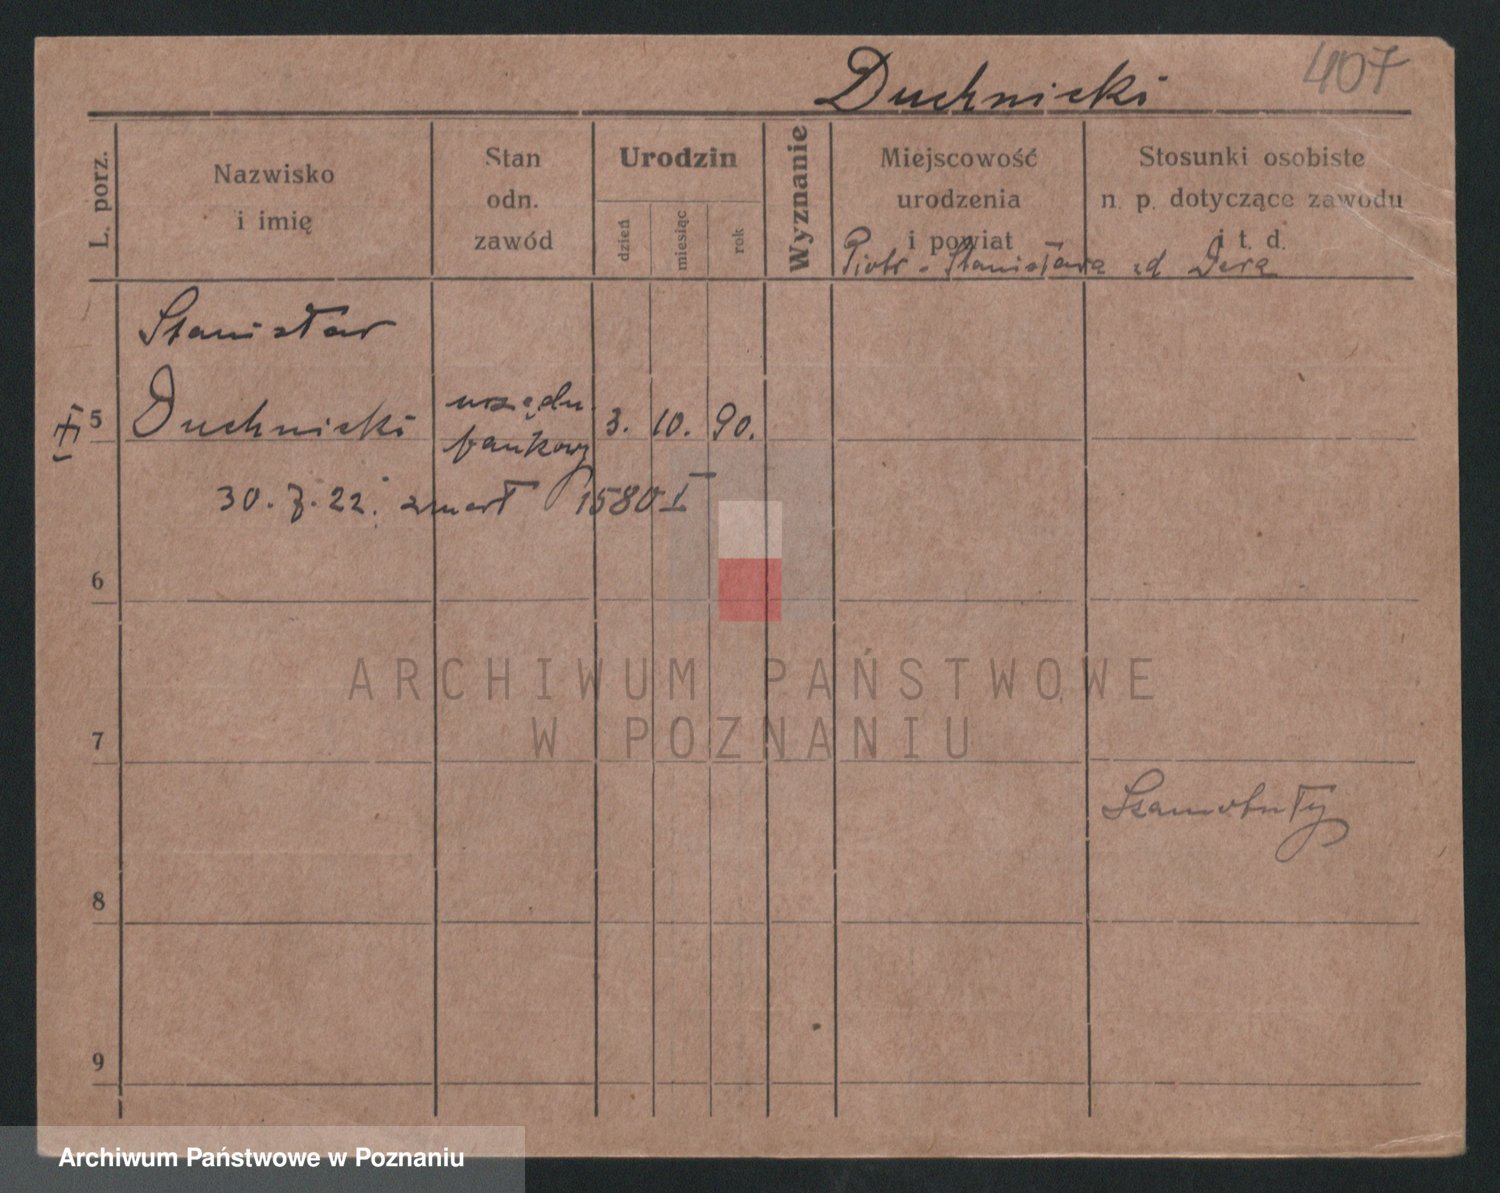 Duchnicki 407
L. porz.
Nazwisko
i imię
Stan
odn.
zawód
Urodzin
dzień
miesiąc
rok
Wyznanie
Miejscowość
urodzenia
i powiat
Stosunki osobiste
n. p. dotyczące zawodu
i t. d.
Piotr - Stanisława
Stanisław
5 Duchnicki urzędn. 3. 10. 90.
bankowy
30. 7. 22. zmarł 1580 I
6
7
Szamotuły
8
9
ARCHIWUM PAŃSTWOWE
W POZNANIU
Archiwum Państwowe w Poznaniu